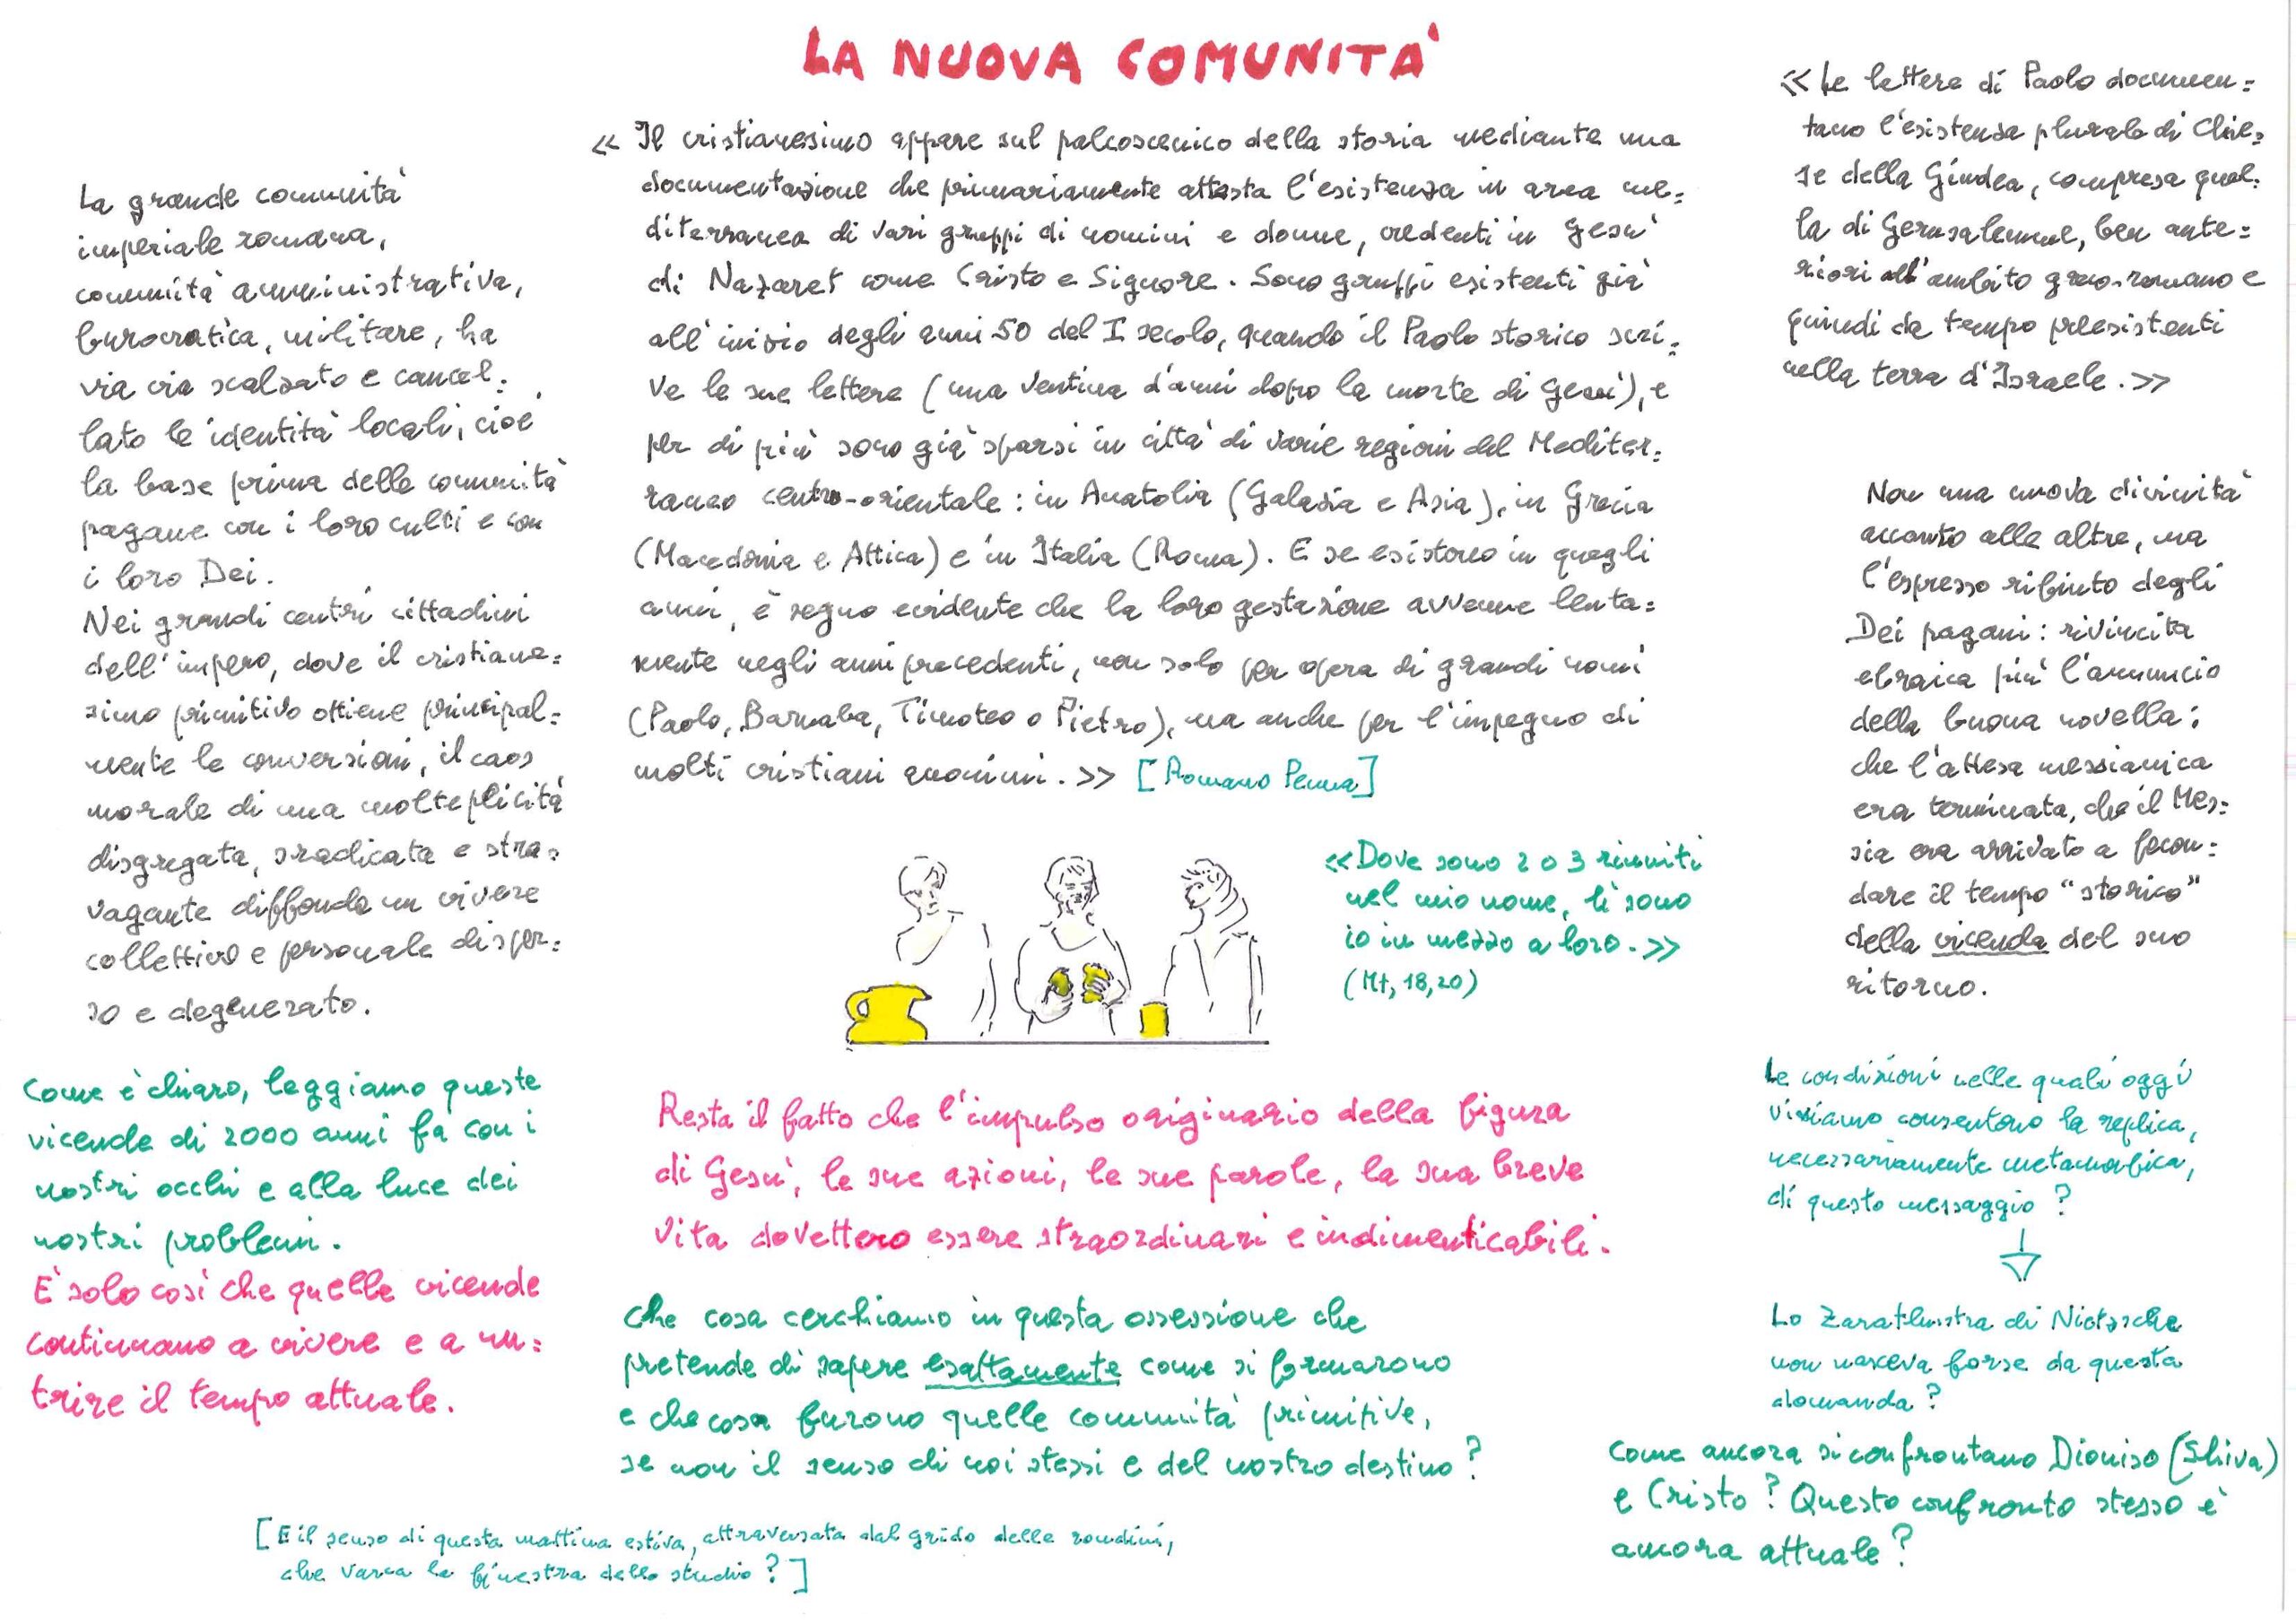 LA NUOVA COMUNITA'
La grande comunità
imperiale romana,
comunità amministrativa,
burocratica, militare, ha
via via scalzato e cancel=
lato le identità locali, cioè
la base prima delle comunità
pagane con i loro culti e con
i loro Dei.
Nei grandi centri cittadini
dell'impero, dove il cristiane=
simo primitivo ottiene principal=
mente le conversioni, il caos
morale di una molteplicità
disgregata, sradicata e stra=
vagante diffonde un vivere
collettivo e personale disper=
so e degenerato.
Come è chiaro, leggiamo queste
vicende di 2000 anni fa con i
nostri occhi e alla luce dei
nostri problemi.
E' solo così che quelle vicende
continuano a vivere e a nu=
trire il tempo attuale.
<< Il cristianesimo appare sul palcoscenico della storia mediante una
documentazione che primariamente attesta l'esistenza in area me=
diterranea di vari gruppi di uomini e donne, credenti in Gesù
di Nazaret come Cristo e Signore. Sono gruppi esistenti già
all'inizio degli anni 50 del I secolo, quando il Paolo storico scri=
ve le sue lettere (una ventina d'anni dopo la morte di Gesù), e
per di più sono già sparsi in città di varie regioni del Mediter=
raneo centro-orientale: in Anatolia (Galazia e Asia), in Grecia
(Macedonia e Attica) e in Italia (Roma). E se esistono in quegli
anni, è segno evidente che la loro gestazione avvenne lenta=
mente negli anni precedenti, non solo per opera di grandi nomi
(Paolo, Barnaba, Timoteo o Pietro), ma anche per l'impegno di
molti cristiani anonimi. >> [Romano Penna]
<<Dove sono 2 o 3 riuniti
nel mio nome, lì sono
io in mezzo a loro. >>
(Mt, 18, 20)
Resta il fatto che l'impulso originario della figura
di Gesù, le sue azioni, le sue parole, la sua breve
vita dovettero essere straordinari e indimenticabili.
Che cosa cerchiamo in questa ossessione che
pretende di sapere esattamente come si formarono
e che cosa furono quelle comunità primitive,
se non il senso di noi stessi e del nostro destino?
[E il senso di questa mattina estiva, attraversata dal grido delle rondini,
che varca la finestra dello studio?]
<< Le lettere di Paolo documen=
tano l'esistenza plurale di Chie=
se della Giudea, compresa quel=
la di Gerusalemme, ben ante=
riori all'ambito greco-romano e
quindi da tempo preesistenti
nella terra d'Israele. >>
Non una nuova divinità
accanto alle altre, ma
l'espresso rifiuto degli
Dei pagani: rivincita
ebraica più l'annuncio
della buona novella:
che l'attesa messianica
era terminata, che il Mes=
sia era arrivato a fecon=
dare il tempo "storico"
della vicenda del suo
ritorno.
Le condizioni nelle quali oggi
viviamo consentono la replica,
necessariamente metamorfica,
di questo messaggio?
Lo Zarathustra di Nietzsche
non nasceva forse da questa
domanda?
Come ancora si confrontano Dioniso (Shiva)
e Cristo? Questo confronto stesso è
ancora attuale?